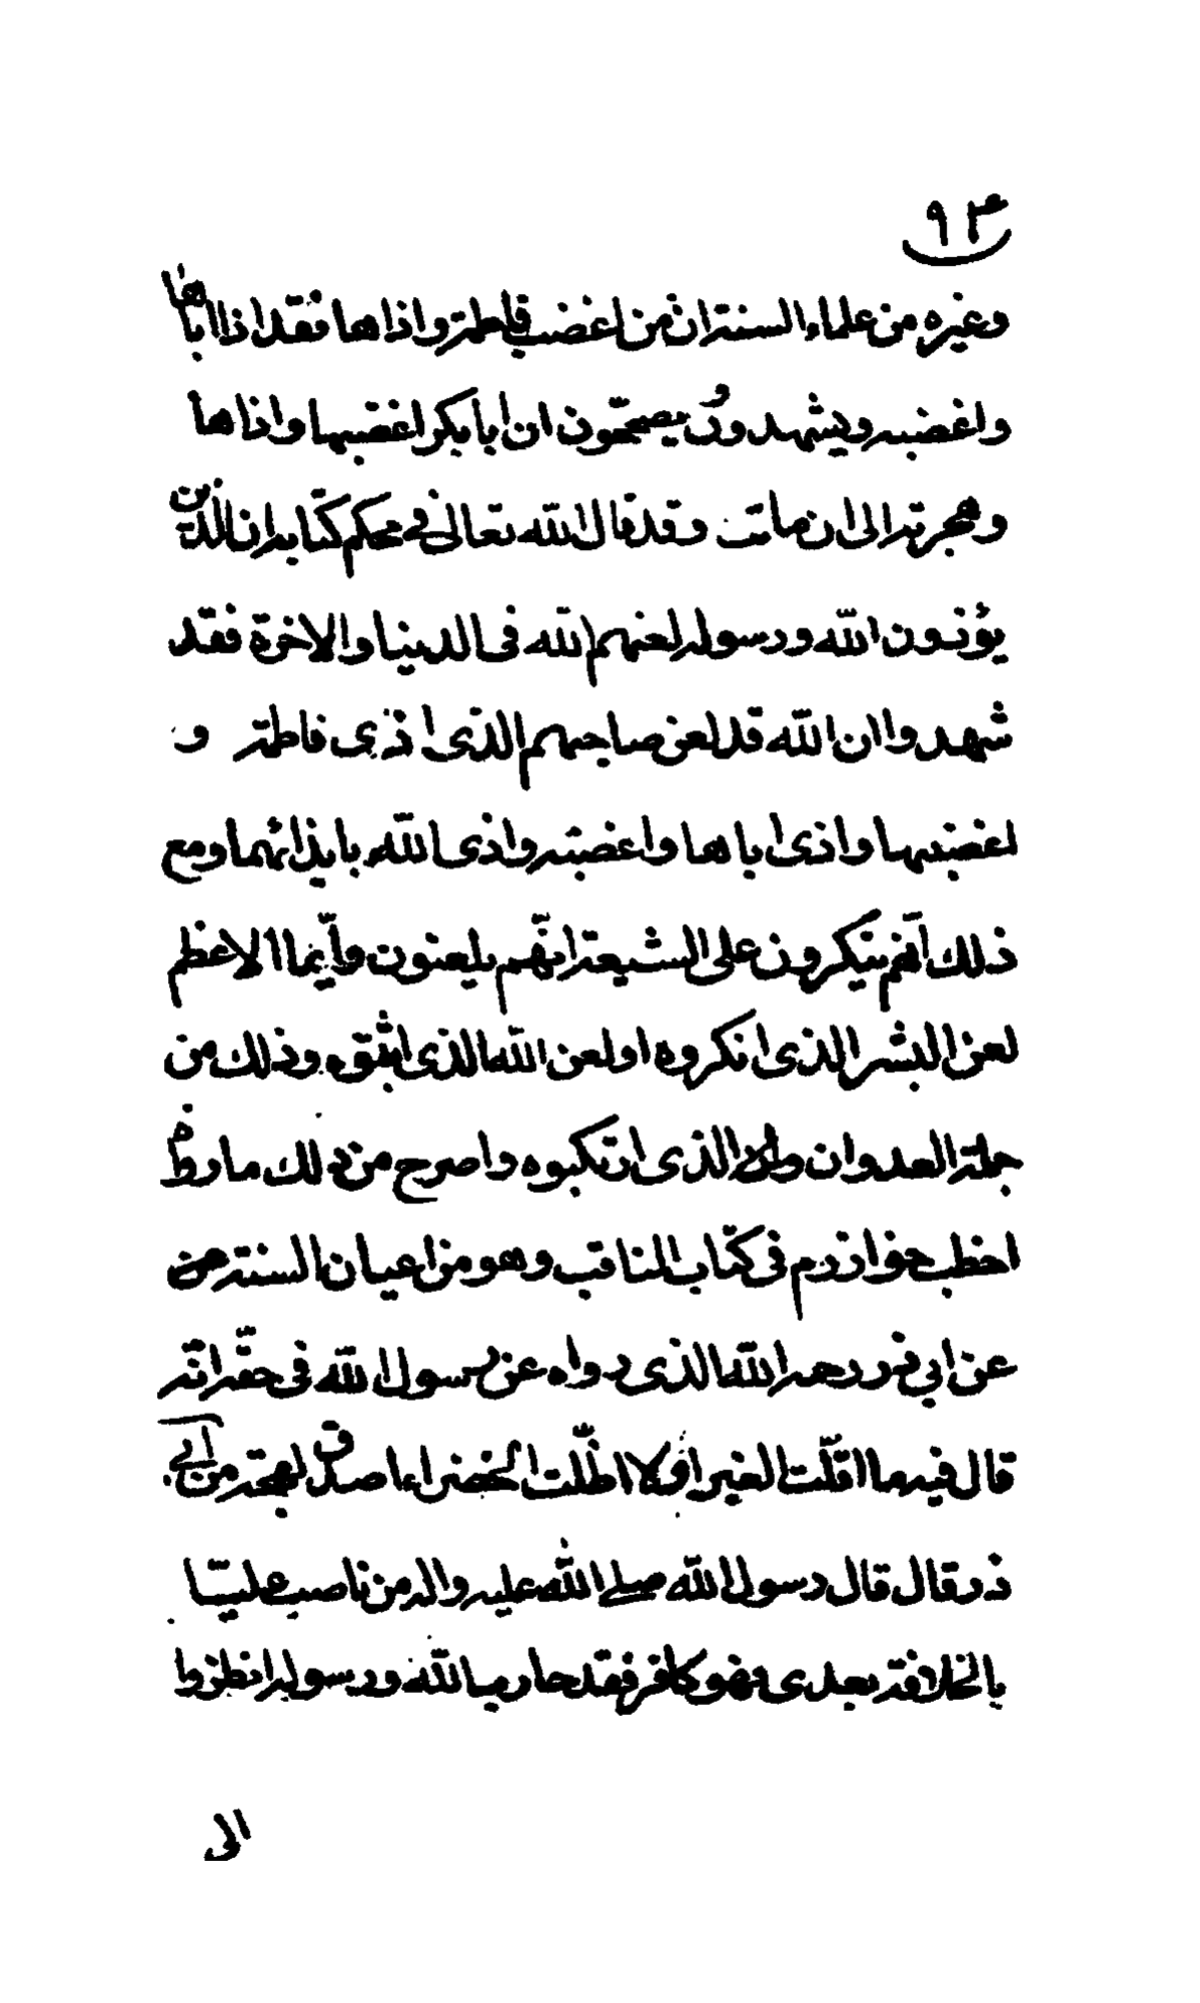 ٩٣
وغيره من علماء السنة ان من اغضب فاطمة واذاها فقد اذا اباها
واغضبه ويشهدون ويصححون ان ابا بكر اغضبها واذاها
وهجرته الى ان ماتت وقد قال الله تعالى في محكم كتابه ان الذين
يؤذون الله ورسوله لعنهم الله فى الدنيا والاخرة فقد
شهدوا ان الله قد لعن صاحبهم الذى اذى فاطمة و
اغضبها واذى اباها واغضبه واذى الله بايذائهما ومع
ذلك انهم ينكرون على الشيعة انهم يلعنون وأيما الاعظم
لعن البشر الذى انكروه او لعن الله الذى اثبتوه وذلك من
جملة العدوان الذى ارتكبوه واصرح من ذلك ما رواه
اخطب خوارزم فى كتاب المناقب وهو من اعيان السنة
عن ابي ذر رحمه الله الذى رواه عن رسول الله في حقه انه
قال فيه ما اقلت الغبراء ولا اظلت الخضراء اصدق لهجة من ابي
ذر قال قال رسول الله صلى الله عليه واله من ناصب عليا
بالخلافة بعدى فهو كافر فقد حارب الله ورسوله انظروا
الى